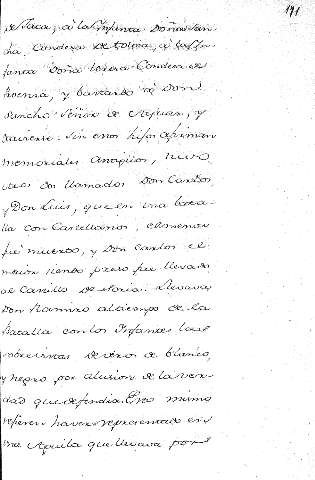 191
de Jaca, à la Infanta Doña San-
cha, Condesa de Tolosa, à la In-
fanta Doña Condesa de
y bastardo à Don
Sancho Señor de Ayvar, y
Sin estos hijos afirman
memoriales Antiguos, tuvo
otros dos llamados Don Carlos
y Don Luis, que en una bata-
lla con Castellanos, el menor
fue muerto, y Don Carlos el
mayor siendo preso fue llevado
al Castillo de Soria. Llevava
Don Ramiro al tiempo de la
Batalla con los Infantes las
sobrevistas de de blanco,
y negro por alusion de la ver-
dad que defendia. Esto mismo
refieren haver representado en
una Aguila que llevava por